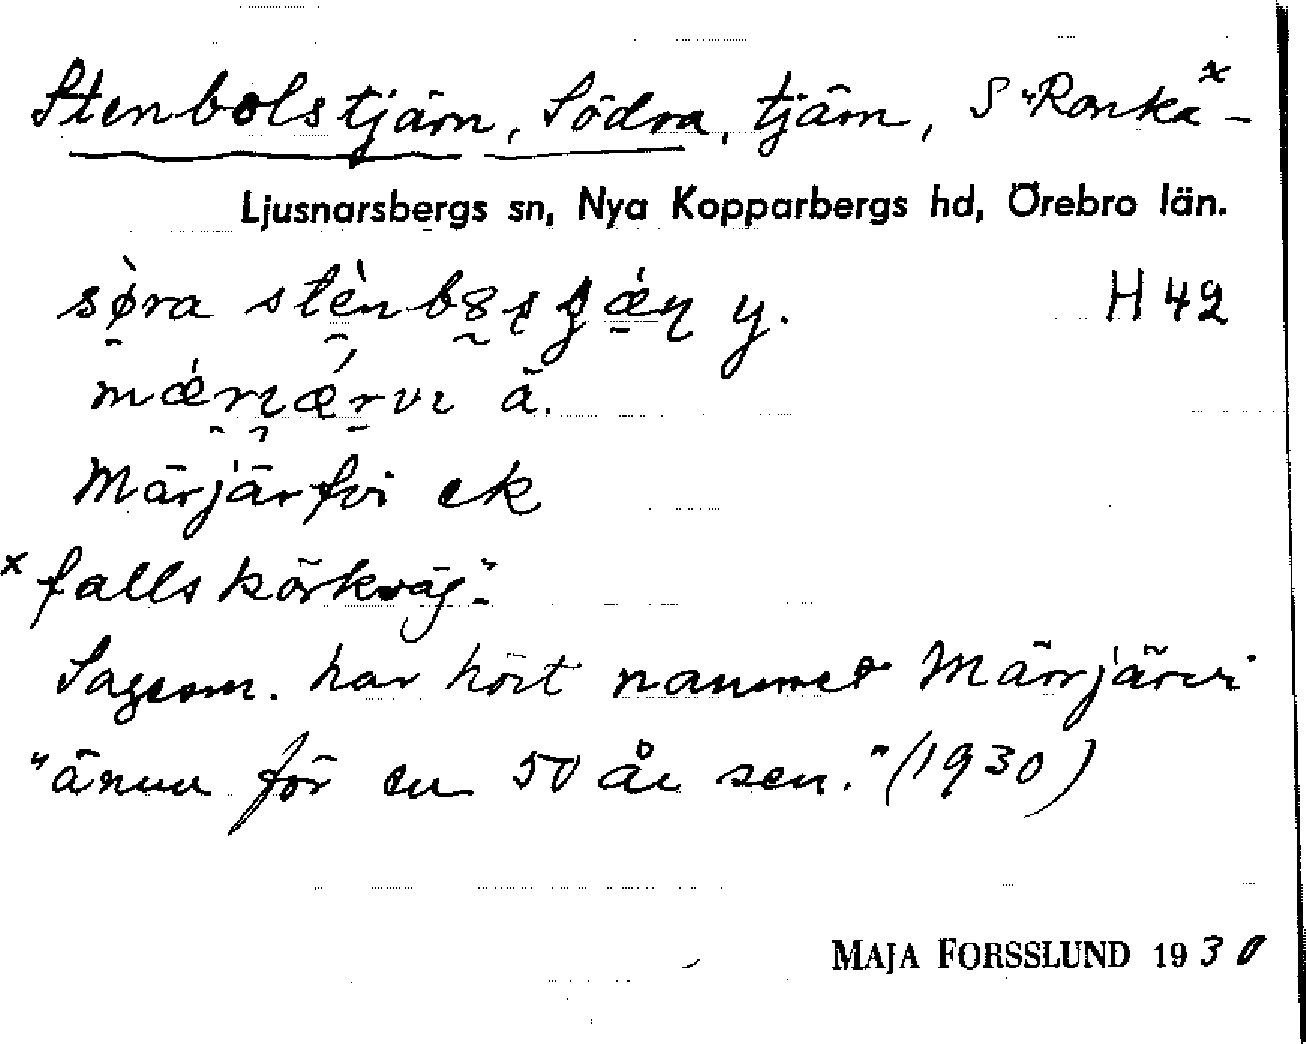 Stenbolstjärn, Södra, tjärn, S "Ronka x -
Ljusnarsbergs sn, Nya Kopparbergs hd, Örebro län.
sø̀ra stènb y. H 42
mǽrɩǽrvɩ ä.
Märjärfvi ek
x fallskörkväg".
Sagesm. har hört namnet Märrjärvi
"ännu för en 50 år sen." (1930)
MAJA FORSSLUND 1930